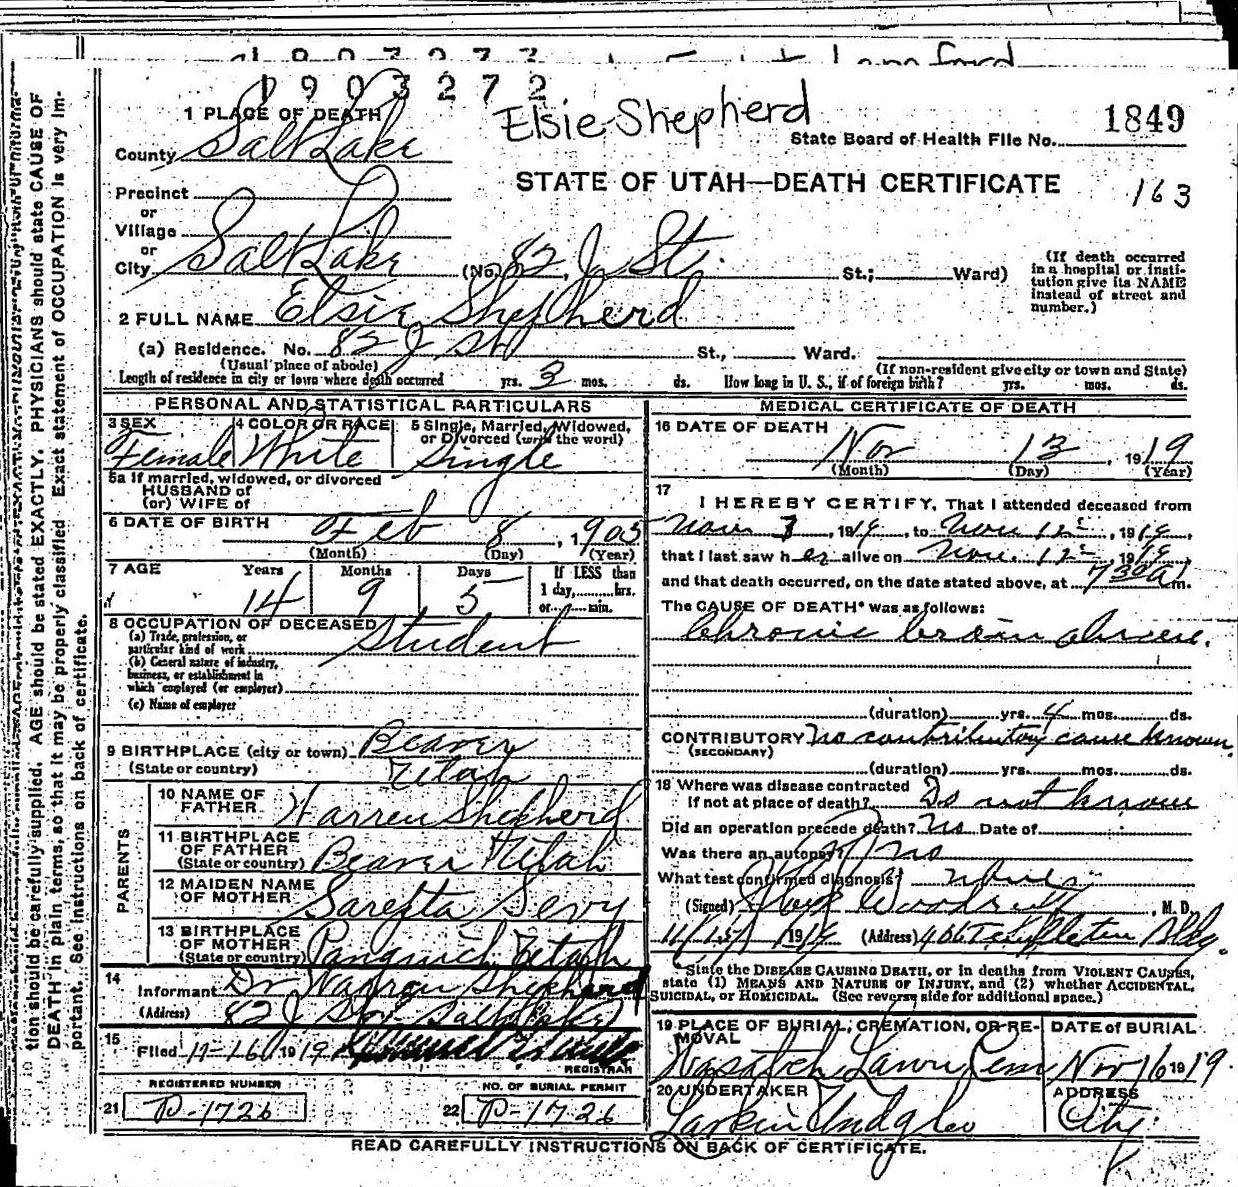 1903272
Elsie Shepherd
1 PLACE OF DEATH
State Board of Health File No. 1849
County Salt Lake
STATE OF UTAH—DEATH CERTIFICATE
163
Precinct
or
Village
or
City Salt Lake (No. 82 J St. St.; Ward)
(If death occurred
in a hospital or insti-
tution give its NAME
instead of street and
number.)
2 FULL NAME Elsie Shepherd
(a) Residence. No. 82 J St St., Ward.
(Usual place of abode) (If non-resident give city or town and State)
Length of residence in city or town where death occurred yrs. 3 mos. ds. How long in U. S., if of foreign birth? yrs. mos. ds.
PERSONAL AND STATISTICAL PARTICULARS
3 SEX Female
4 COLOR OR RACE White
5 Single, Married, Widowed,
or Divorced (write the word)
Single
5a If married, widowed, or divorced
HUSBAND of
(or) WIFE of
6 DATE OF BIRTH Feb 8, 1905
(Month) (Day) (Year)
7 AGE Years Months Days
14 9 5
If LESS than
1 day, hrs.
or min.
8 OCCUPATION OF DECEASED
(a) Trade, profession, or
particular kind of work Student
(b) General nature of industry,
business, or establishment in
which employed (or employer)
(c) Name of employer
9 BIRTHPLACE (city or town) Beaver
(State or country) Utah
PARENTS
10 NAME OF
FATHER Warren Shepherd
11 BIRTHPLACE
OF FATHER
(State or country) Beaver Utah
12 MAIDEN NAME
OF MOTHER Saretta Sevy
13 BIRTHPLACE
OF MOTHER
(State or country) Panguich Utah
14
Informant Dr Warren Shepherd
(Address) 82 J St Salt Lake
15
Filed 11-16 1919
REGISTRAR
REGISTERED NUMBER
21 P-1726
NO. OF BURIAL PERMIT
22 P-1726
MEDICAL CERTIFICATE OF DEATH
16 DATE OF DEATH
Nov 13, 1919
(Month) (Day) (Year)
17
I HEREBY CERTIFY, That I attended deceased from
Nov 7, 1919, to Nov 12, 1919,
that I last saw her alive on Nov. 12, 1919,
and that death occurred, on the date stated above, at 730 a m.
The CAUSE OF DEATH* was as follows:
Chronic brain abscess.
(duration) yrs. 4 mos. ds.
CONTRIBUTORY No contributory cause known.
(SECONDARY)
(duration) yrs. mos. ds.
18 Where was disease contracted
if not at place of death? Do not know
Did an operation precede death? No Date of
Was there an autopsy? No
What test confirmed diagnosis? None
(Signed) Woodruff, M. D.
11/15/1919 (Address) 406 Templeton Bldg.
*State the DISEASE CAUSING DEATH, or in deaths from VIOLENT CAUSES,
state (1) MEANS AND NATURE OF INJURY, and (2) whether ACCIDENTAL,
SUICIDAL, or HOMICIDAL. (See reverse side for additional space.)
19 PLACE OF BURIAL, CREMATION, OR RE-
MOVAL
Wasatch Lawn Cem
DATE of BURIAL
Nov 16 1919.
20 UNDERTAKER
Larkin Undg Co
ADDRESS
City
READ CAREFULLY INSTRUCTIONS ON BACK OF CERTIFICATE.
tion should be carefully supplied. AGE should be stated EXACTLY. PHYSICIANS should state CAUSE OF
DEATH in plain terms, so that it may be properly classified. Exact statement of OCCUPATION is very im-
portant. See instructions on back of certificate.